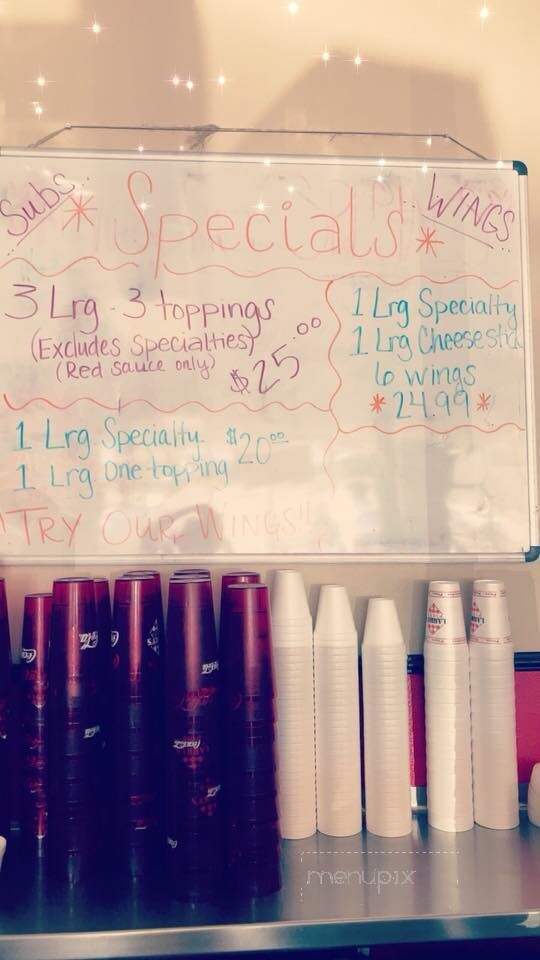 Subs..
* Specials *
.. WINGS
3 Lrg - 3 toppings
(Excludes Specialties)
(Red sauce only)
$25.00
1 Lrg Specialty
1 Lrg Cheesestick
6 wings
* 24.99 *
1 Lrg Specialty $20.00
1 Lrg One topping
! TRY OUR WINGS!!
Coca-Cola
menupix